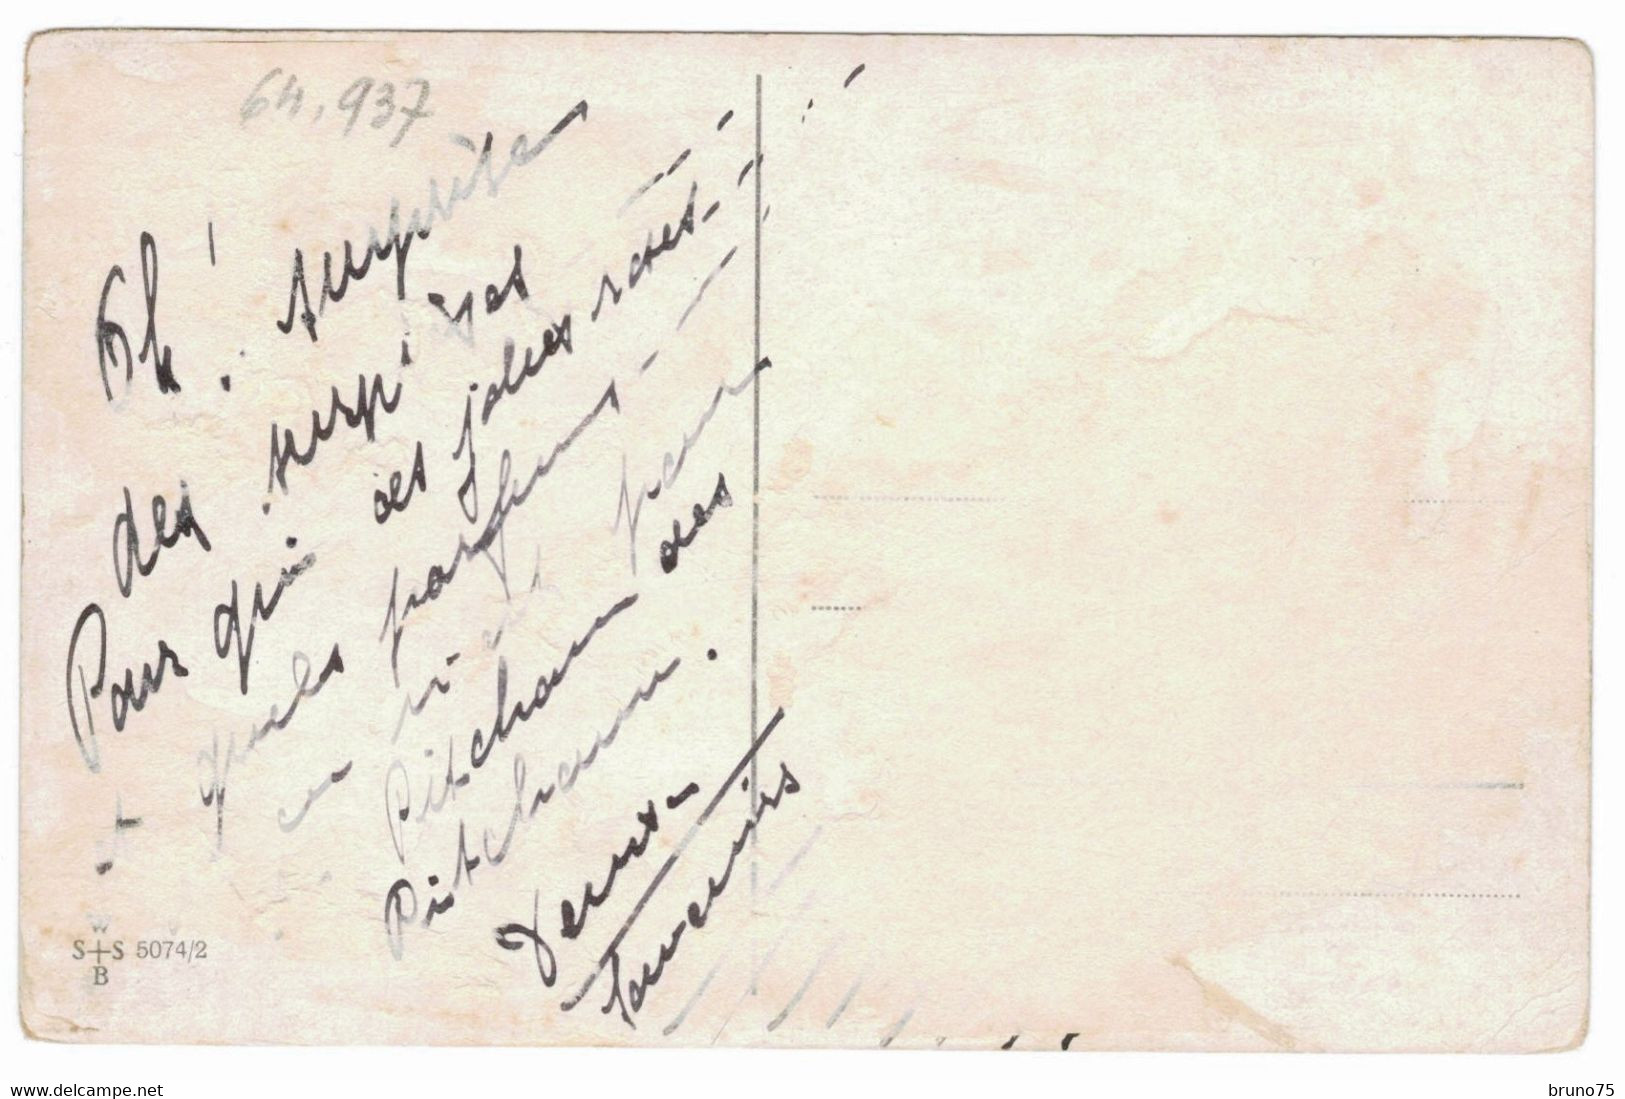 64.937
Oh! surprise
des surprises
Pour qui ces jolies roses
et quels parfums
un
Pitchoun des
Pitchoun.
souvenirs
W
S+S 5074/2
B
www.delcampe.net
bruno75